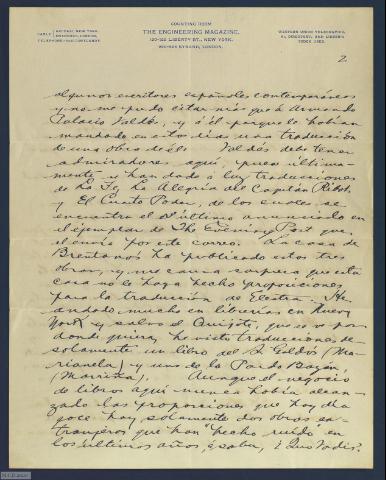 COUNTING ROOM
THE ENGINEERING MAGAZINE,
120-122 LIBERTY ST., NEW YORK.
LONDON.
CABLE
WESTERN UNION TELEGRAPHIC
2
algunos escritores españoles contemporáneos
y no me pudo citar más que á Armando
Palacio Valdés, y á él porque le habían
mandado en estos días una traducción
de una obra de él. Valdés debe tener
admiradores aquí, pues última-
mente han dado á luz traducciones
de La Fe, La Alegría del Capitán Ribot,
y El Cuarto Poder, de los cuales se
encuentra el último anunciado en
el ejemplar de The Evening Post que
le envío por este correo. La casa de
Brentano's ha publicado estas tres
obras, y me causa sorpresa que esta
casa no le haya hecho proposiciones
para la traducción de Electra. He
andado mucho en librerías en Nueva
York y salvo el Quijote, que se ve por
donde quiera, he visto traducciones de
solamente un libro del Sr. Galdós (Ma-
rianela) y uno de la Pardo Bazán,
(Marriña). Aunque el negocio
de libros aquí nunca había alcan-
zado las proporciones que hoy día
goce hay solamente dos obras ex-
tranjeras que han "hecho ruido" en
los últimos años, á saber, ¿Quo Vadis?